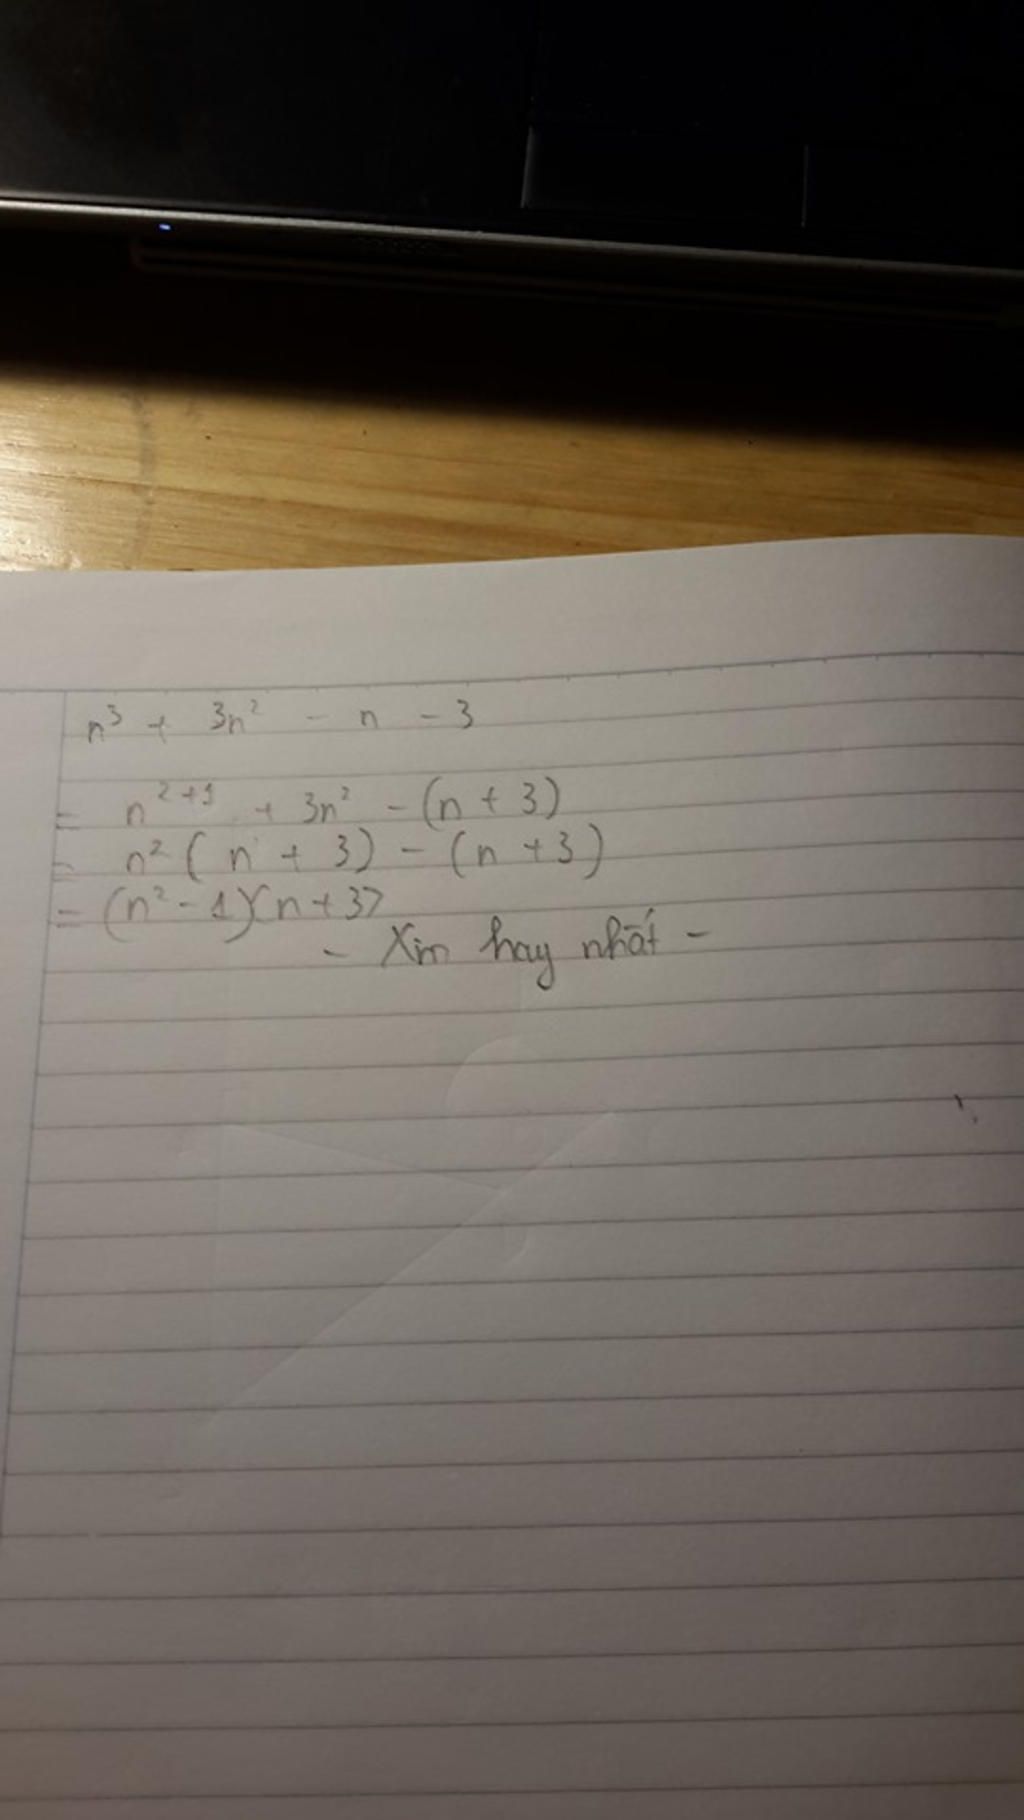 n³ + 3n² - n - 3
= n²⁺¹ + 3n² - (n + 3)
= n² (n + 3) - (n + 3)
= (n² - 1)(n + 3)
- Xin hay nhất -